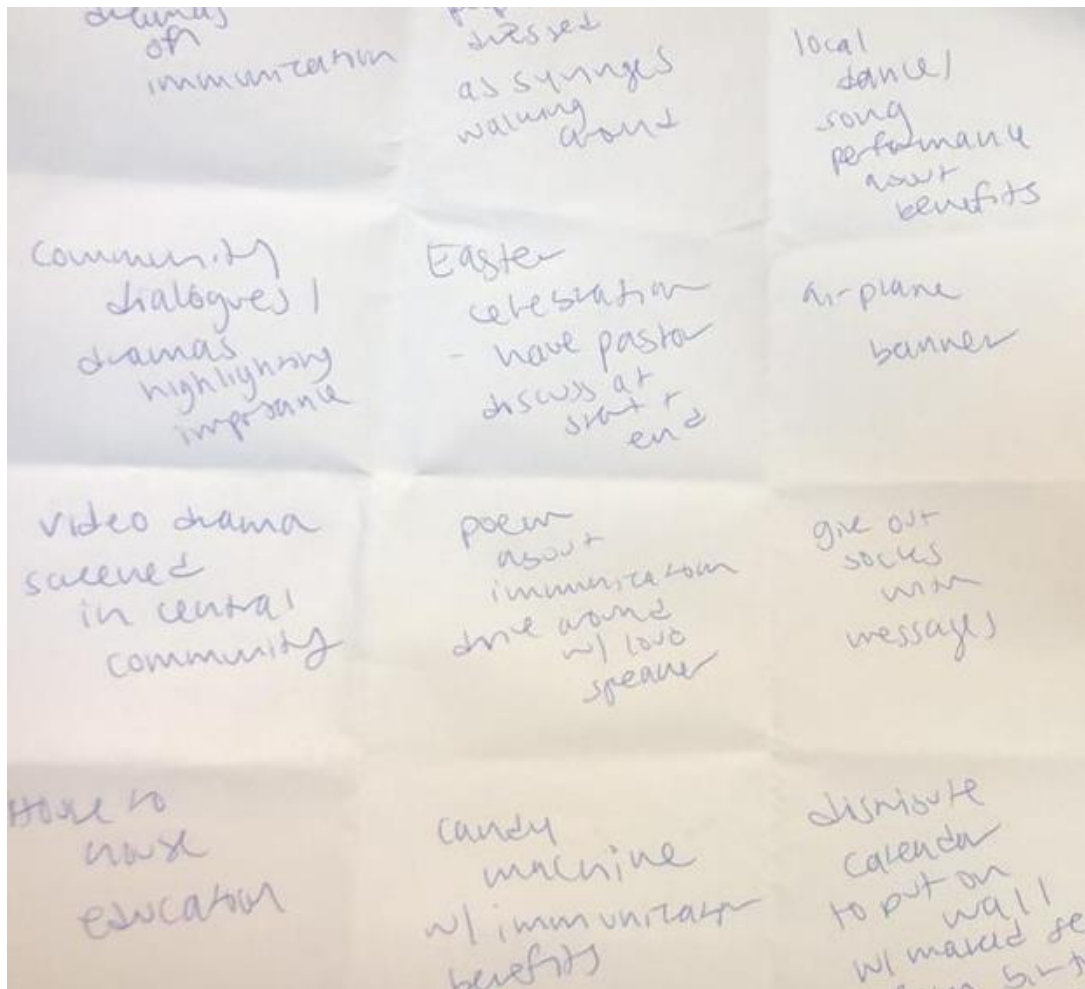 dramas
on
immunization
dressed
as syringes
walking
around
local
dance/
song
performance
about
benefits
Community
dialogues/
dramas
highlighting
importance
Easter
celebration
- have pastor
discuss at
start +
end
airplane
banner
video drama
screened
in central
community
poem
about
immunization
drive around
w/ loud
speaker
give out
socks
with
messages
House to
house
education
candy
machine
w/ immunization
benefits
distribute
calendar
to put on
wall
w/ marked